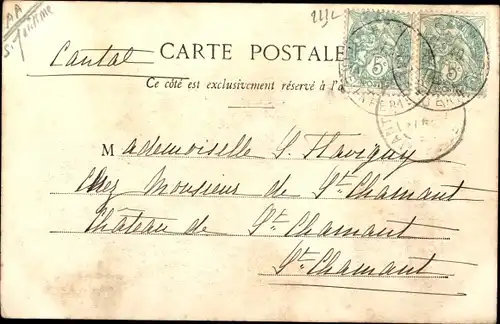 Cantal
CARTE POSTALE
Ce côté est exclusivement réservé à l'a
5c 5c
Mademoiselle S. Flavigny
Chez Monsieur de St. Chamant
Château de St. Chamant
St. Chamant